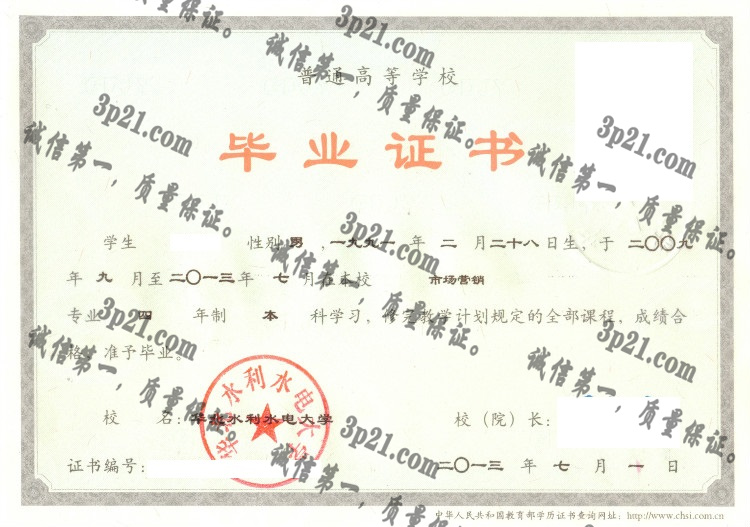 普通高等学校
毕业证书
学生 性别 男 ，一九九一 年 二 月 二十八 日生，于 二〇〇九
年 九 月至 二〇一三 年 七 月在本校 市场营销
专业 四 年制 本 科学习，修完教学计划规定的全部课程，成绩合
格，准予毕业。
校 名：华北水利水电大学
校（院）长：
华北水利水电大学
证书编号：
二〇一三 年 七 月 一 日
中华人民共和国教育部学历证书查询网址：http://www.chsi.com.cn
3p21.com
诚信第一，质量保证。
3p21.com
诚信第一，质量保证。
3p21.com
诚信第一，质量保证。
3p21.com
诚信第一，质量保证。
3p21.com
诚信第一，质量保证。
3p21.com
诚信第一，质量保证。
3p21.com
诚信第一，质量保证。
3p21.com
诚信第一，质量保证。
质量保证。